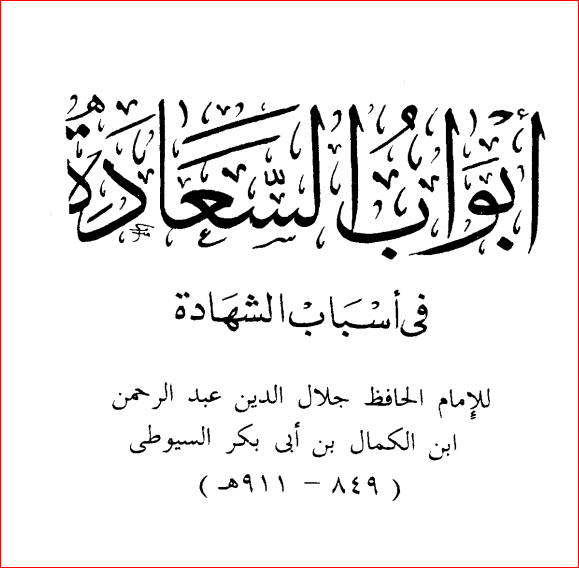 أبواب السعادة
في أسباب الشهادة
للإمام الحافظ جلال الدين عبد الرحمن
ابن الكمال بن أبى بكر السيوطى
( ٨٤٩ – ٩١١هـ )